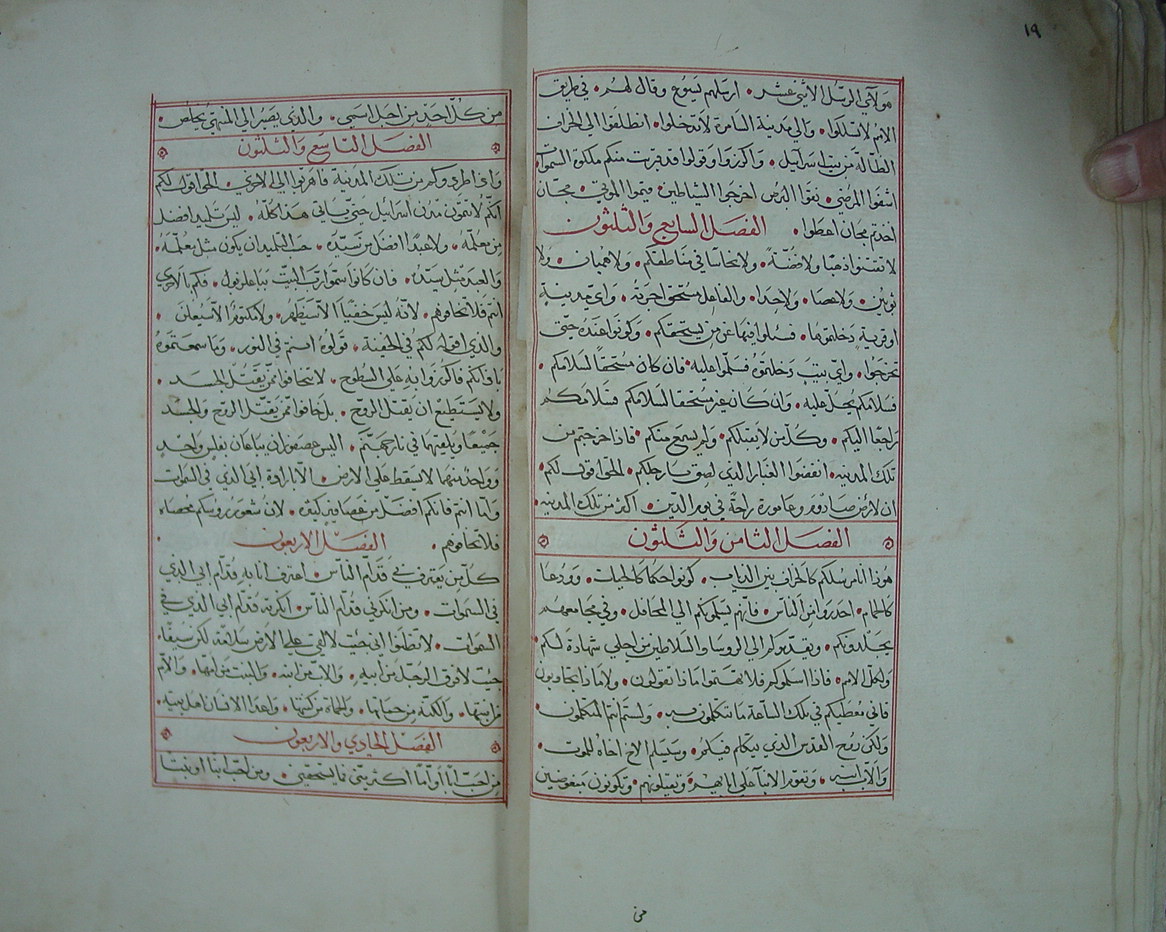 ١٩
مولآي الرسل الاثني عشر • ارسلهم يسوع وقال لهم • في طريق
الامم لا تسلكوا • والي مدينة السامرة لا تدخلوا • انطلقوا الي الخراف
الضالة من بيت اسرآيل • واكرزوا وقولوا قد قربت منكم ملكوة السموات
اشفوا المرضي • نقوا البرص اخرجوا الشياطين • قيموا الموتي • مجان
اخدتم مجان اعطوا • الفصل السابع والثلثون
لا تقتنوا ذهبًا ولا فضّة • ولا نحاسا في مناطقكم • ولا هميان • ولا
ثوبين • ولا عصا • ولا حدا • والفاعل مستحق اجرته • واي مدينة
او قرية دخلتموها • فسلوا فيها عن من يستحقكم • وكونوا عنده حتي
تخرجوا • واي بيت دخلتموه فسلموا عليه • فان كان مستحقا لسلامكم •
فسلامكم يحل عليه • وان كان غير مستحقا لسلامكم فسلامكم
راجعا اليكم • وكل من لا يقبلكم • ولم يسمع منكم • فاذا خرجتم من
تلك المدينه • انفضوا الغبار الذي لصق بارجلكم • الحق اقول لكم •
ان لارض صادوم وعامورة راحة في يوم الدين • اكثر من تلك المدينه •
الفصل الثامن والثلثون
هوذا انا مرسلكم كالخراف بين الذياب • كونوا حكما كالحيات • وودعا
كالحمام • احدروا من الناس • فانهم يسلموكم الي المحافل • وفي مجامعهم
يجلدونكم • ويقدموكم الي الروسا والسلاطين من اجلي شهادة لكم
ولكل الامم • فاذا اسلموكم فلا تهتموا ماذا تقولون • ولا ماذا تجاوبون
فاني معطيكم في تلك الساعة ما تتكلمون به • ولستم انتم المتكلمون •
ولكن روح القدس الذي يتكلم فيكم • وسيسلم الاخ اخاه للموت •
والاب ابنه • وتقوم الابنآ علي ابايهم • وتقتلونهم • وتكونون مبغوضين
من
من كل احد من اجل اسمي • والذي يصبر الي المنتهي يخلص •
الفصل التاسع والثلثون
واذا طردوكم من تلك المدينة فاهربوا الي الاخري • الحق اقول لكم
انكم لا تتمون مدن اسرائيل حتي ياتي هذا كله • ليس تلميد افضل
من معلمه • ولا عبدا افضل من سيده • حسب التلميد ان يكون مثل معلمه •
والعبد مثل سيده • فان كانوا سموا رب البيت بباعلزبول • فكم بالاحري
انتم فلا تخافوهم • لانه ليس خفيا الا سيظهر • ولا مكتومًا الا سيعلن •
والذي اقوله لكم في الخفية • قولوه انتم في النور • وما سمعتموه
باذانكم فاكرزوا به علي السطوح • لا تخافوا ممن يقتل الجسد •
ولا يستطيع ان يقتل الروح • بل خافوا ممن يقتل الروح والجسد
جميعا ويلقيهما في نار جهنم • اليس عصفوران يباعان بفلس واحد
وواحد منهما لا يسقط علي الارض • الا بارادة ابي الذي في السموات
واما انتم فانكم افضل من عصافير كثيره • لان شعور روسكم محصاه
فلا تخافوهم • الفصل الاربعون •
كل من يعترف بي قدام الناس • اعترف انا به قدام ابي الذي
في السموات • ومن انكرني قدام الناس • انكرته قدام ابي الذي في
السموات • لا تظنوا اني جيت لالقي علي الارض سلامة لكن سيفا •
جيت لافرق الرجل من ابيه • والابن من ابنه • والبنت من امها • والام
من ابنتها • والكنه من حماتها • والحماة من كنتها • واعدا الانسان اهل بيته
الفصل الحادي والاربعون
من احب ابًا او امًا اكثر مني فما يستحقني • ومن احب ابنا او بنتا